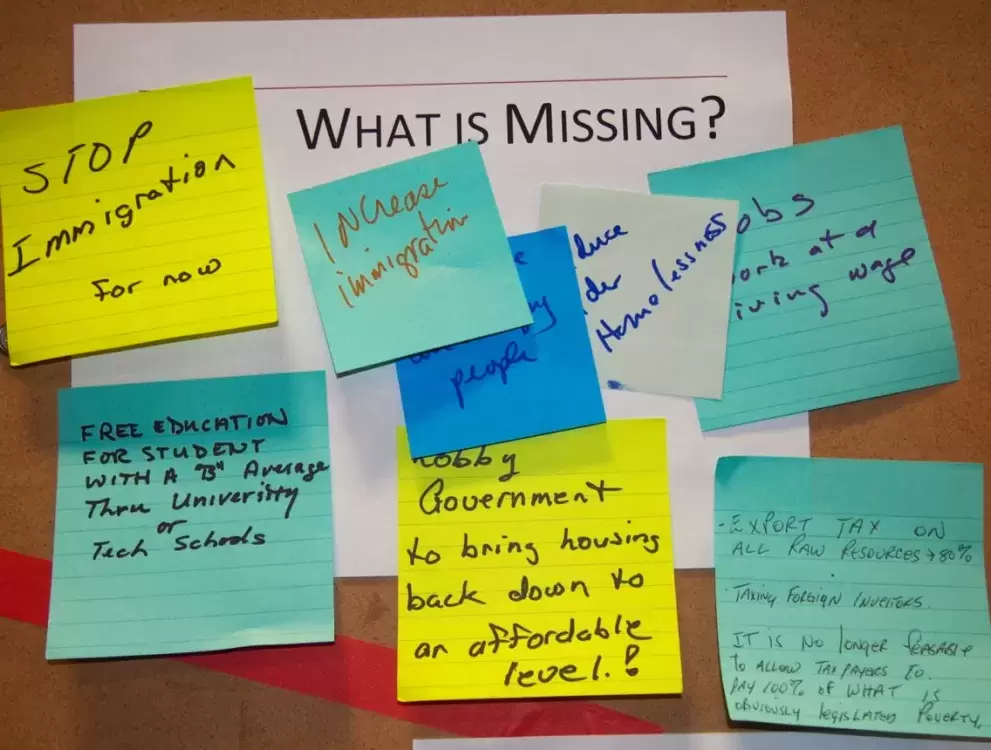 WHAT IS MISSING?
STOP
Immigration
For now
INCrease
immigratin
people
Homelessness
at a
wage
FREE EDUCATION
FOR STUDENT
WITH A "B" Average
Thru University
or
Tech Schools
Government
to bring housing
back down to
an affordable
level.!
- EXPORT TAX ON
ALL RAW RESOURCES → 80%
- TAXING FOREIGN INVESTORS.
IT IS NO longer feasable
to ALLOW TAX PAYERS to
PAY 100% OF WHAT IS
obviously legislated Poverty.